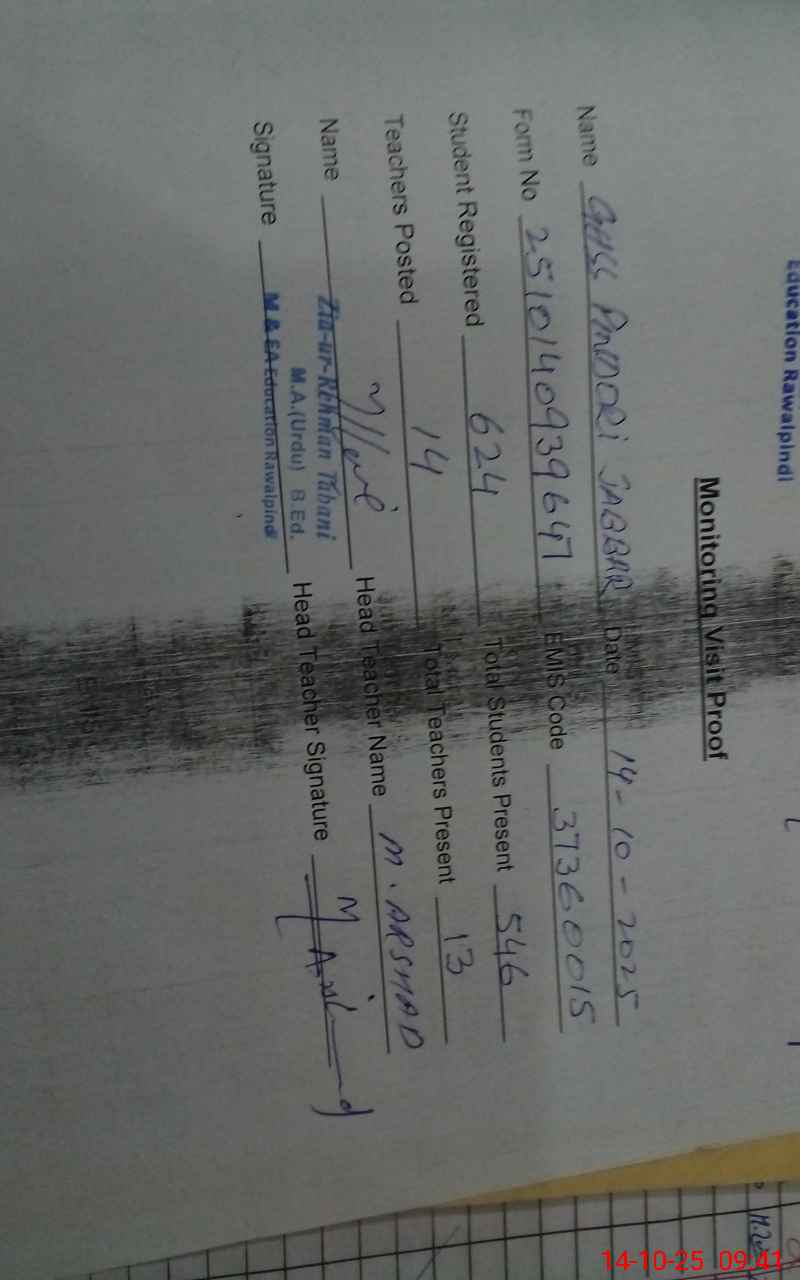 Education Rawalpindi
Monitoring Visit Proof
Name GHSS PINDORI JABBAR Date 14-10-2025
Form No 2510140939647 EMIS Code 37360015
Student Registered 624 Total Students Present 546
Teachers Posted 14 Total Teachers Present 13
Name Zia-ur-Rehman Tabani Head Teacher Name M. ARSHAD
M.A.(Urdu) B.Ed.
Signature M & EA Education Rawalpindi Head Teacher Signature
14-10-25 09:41